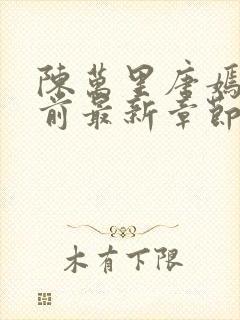 陳萬里唐嫣
前最新章節
木有下限